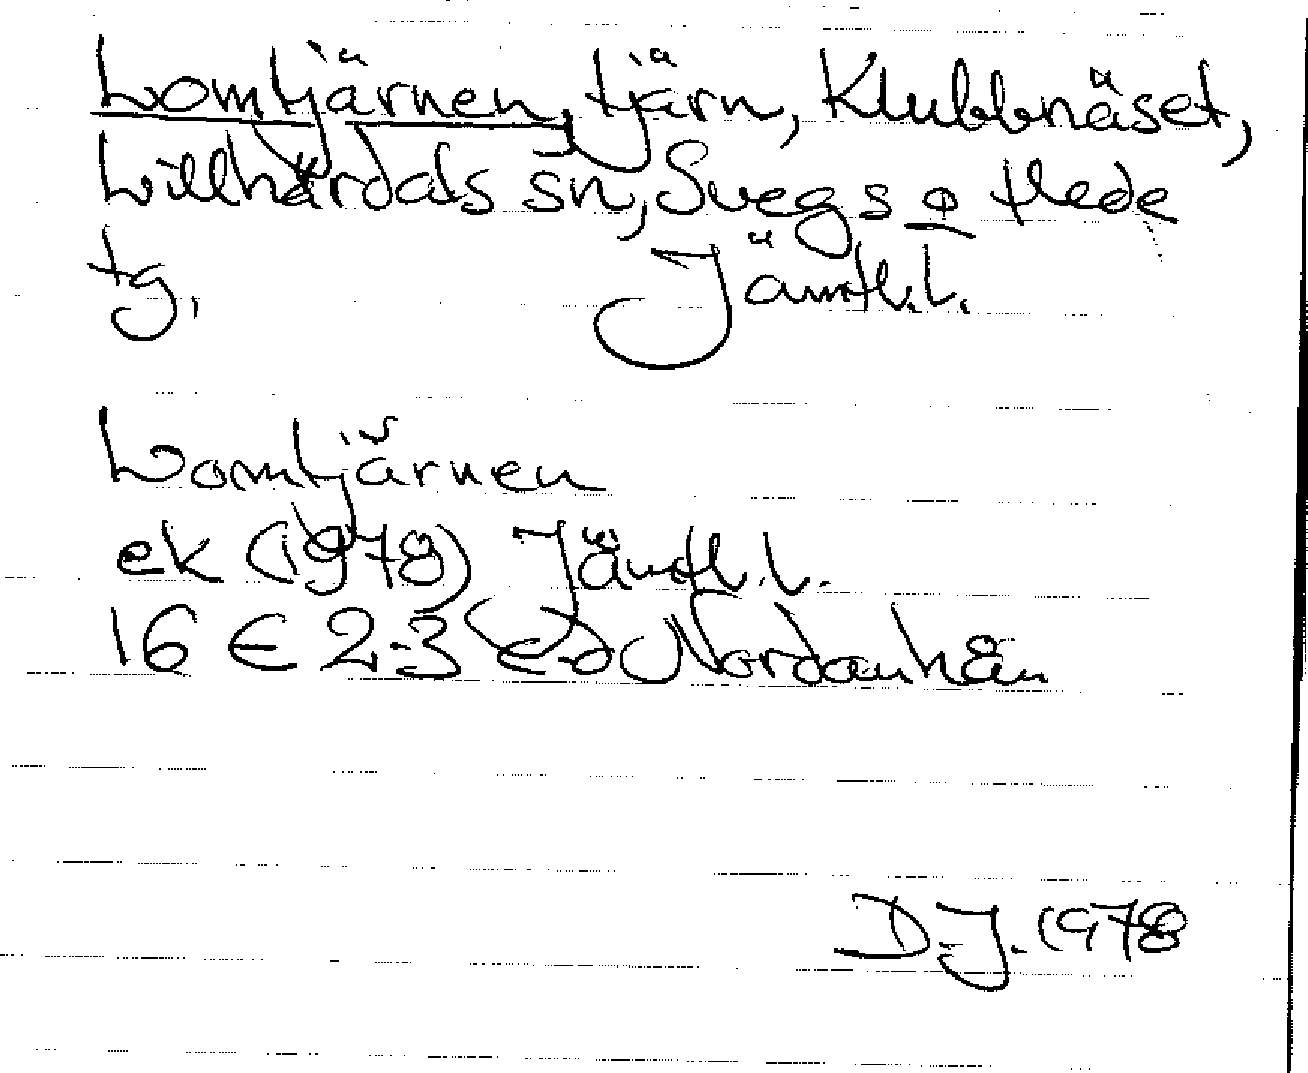 Lomtjärnen, tjärn, Klubbnäset,
Lillhärdals sn, Svegs o Hede
tg. Jämtl. l.
Lomtjärnen
ek (1978) Jämtl. l.
16 E 2-3 c-d Nordanhån
D.J. 1978